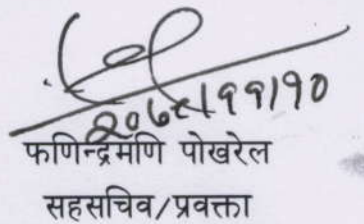 २०७८।११।१०
फणिन्द्रमणि पोखरेल
सहसचिव/प्रवक्ता